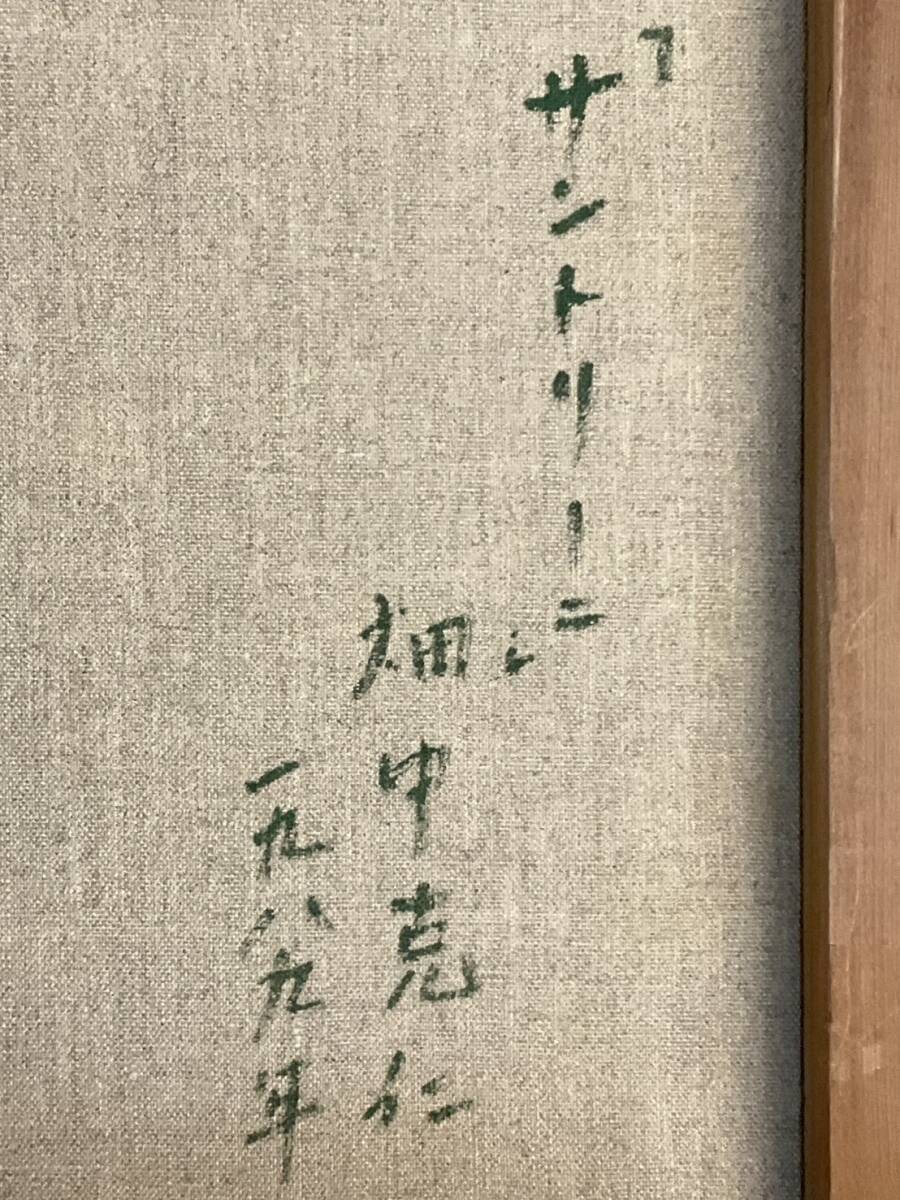 「サントリーニ」
畑中克仁
一九八九年